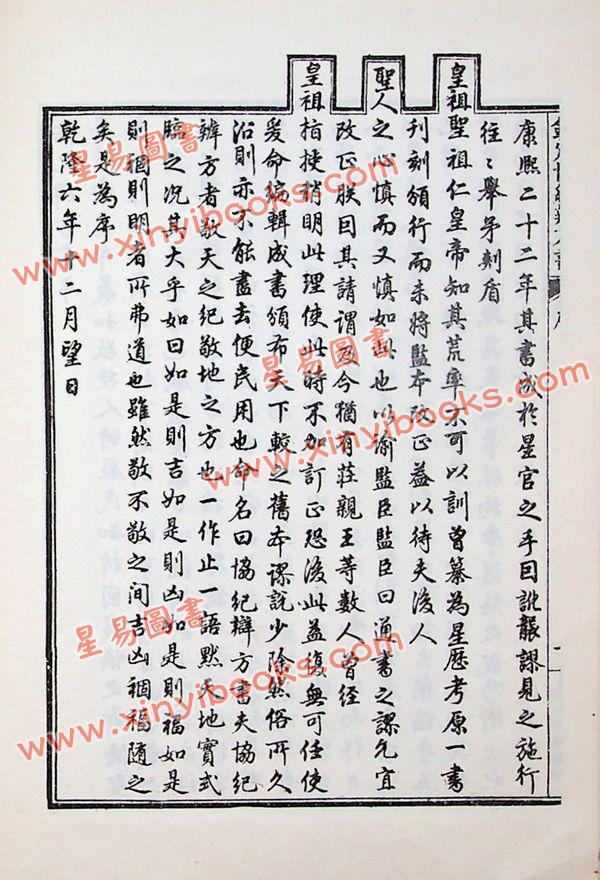 康熙二十二年其書成於星官之手因訛襲謬見之施行
往〻舉矛刺盾
皇祖聖祖仁皇帝知其荒率不可以訓曾纂為星歷考原一書
刊刻頒行而未將監本改正蓋以待夫後人
聖人之心慎而又慎如此也以諭監臣監臣曰通書之謬允宜
改正朕曰其請謂及今猶有莊親王等數人曾經
皇祖指授稍明此理使此時不加訂正恐後此益復無可任使
爰命編輯成書頒布天下較之舊本謬說少除然俗所久
沿則亦不能盡去便民用也命名曰協紀辨方書夫協紀
辨方者敬天之紀敬地之方也一作止一語默天地實式
臨之況其大乎如曰如是則吉如是則凶如是則福如是
則禍則明者所弗道也雖然敬不敬之間吉凶禍福隨之
矣是為序
乾隆六年十二月望日
星易圖書
www.xinyibooks.com
星易圖書
www.xinyibooks.com
星易圖書
www.xinyibooks.com
星易圖書
www.xinyibooks.com